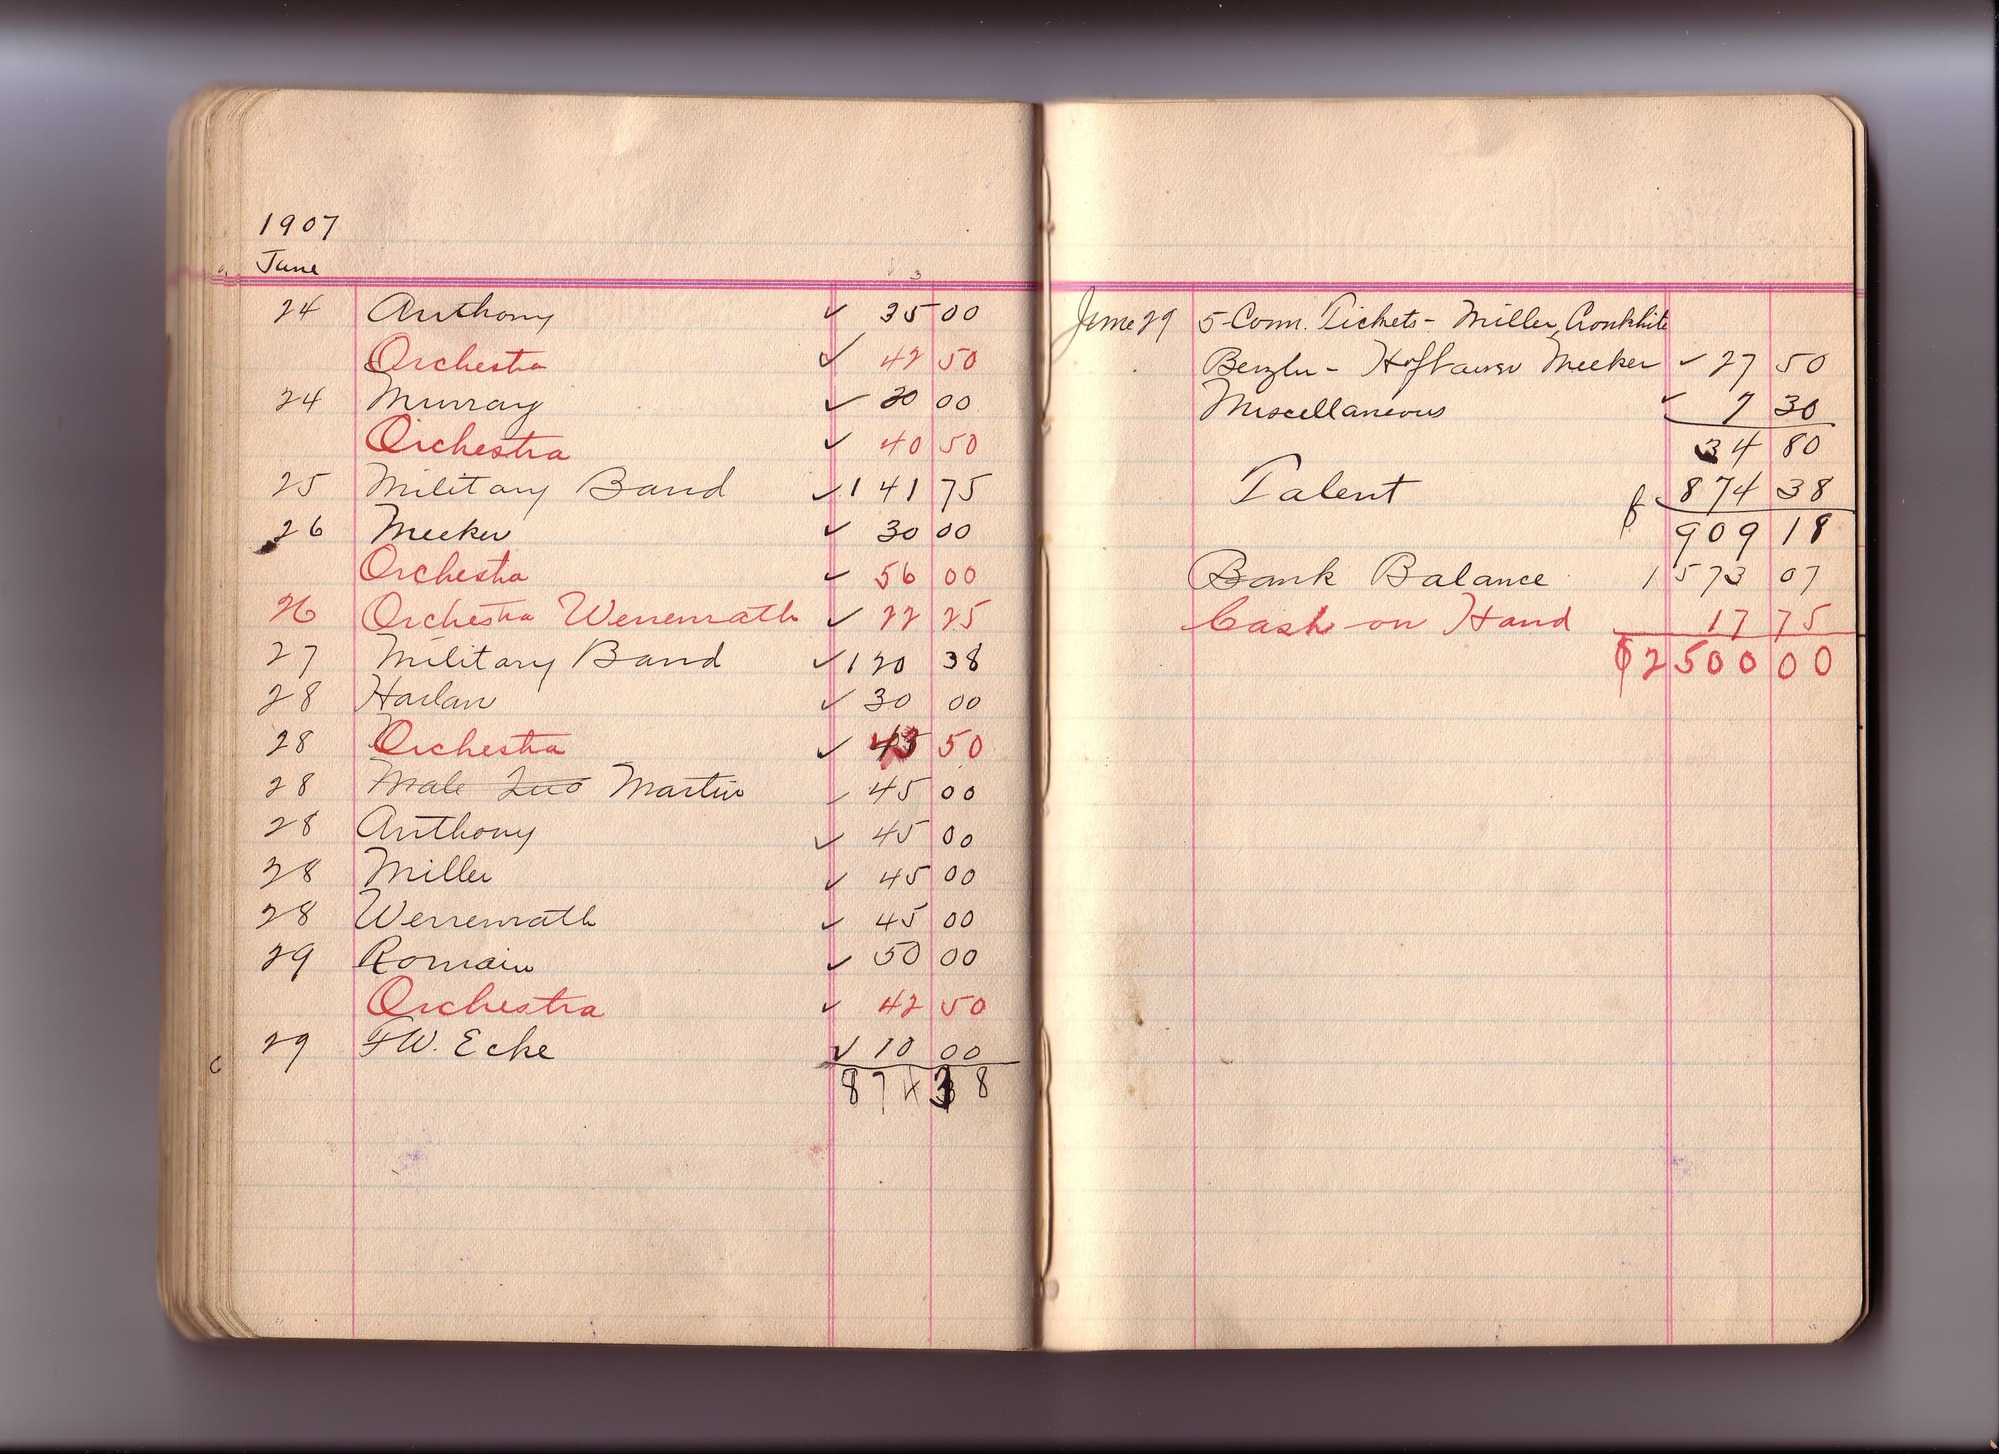 1907
June
24 Anthony ✓ 35 00
Orchestra ✓ 42 50
24 Murray ✓ 30 00
Orchestra ✓ 40 50
25 Military Band ✓ 141 75
26 Meeker ✓ 30 00
Orchestra ✓ 56 00
26 Orchestra Werrenrath ✓ 22 25
27 Military Band ✓ 120 38
28 Harlan ✓ 30 00
28 Orchestra ✓ 43 50
28 Male Trio Martin ✓ 45 00
28 Anthony ✓ 45 00
28 Miller ✓ 45 00
28 Werrenrath ✓ 45 00
29 Romain ✓ 50 00
Orchestra ✓ 42 50
29 F.W. Ecke ✓ 10 00
874 38
June 29 5-Com. Tickets - Miller, Cronkhite
Benzler - Meeker ✓ 27 50
Miscellaneous ✓ 7 30
34 80
Talent 874 38
$ 909 18
Bank Balance 1573 07
Cash on Hand 17 75
$2500 00